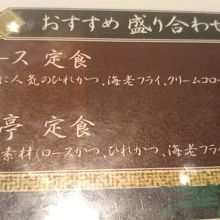 おすすめ 盛り合わせ
ース 定食
に人気のひれかつ、海老フライ、クリームコロ
亭 定食
素材(ロースかつ、ひれかつ、海老フライ